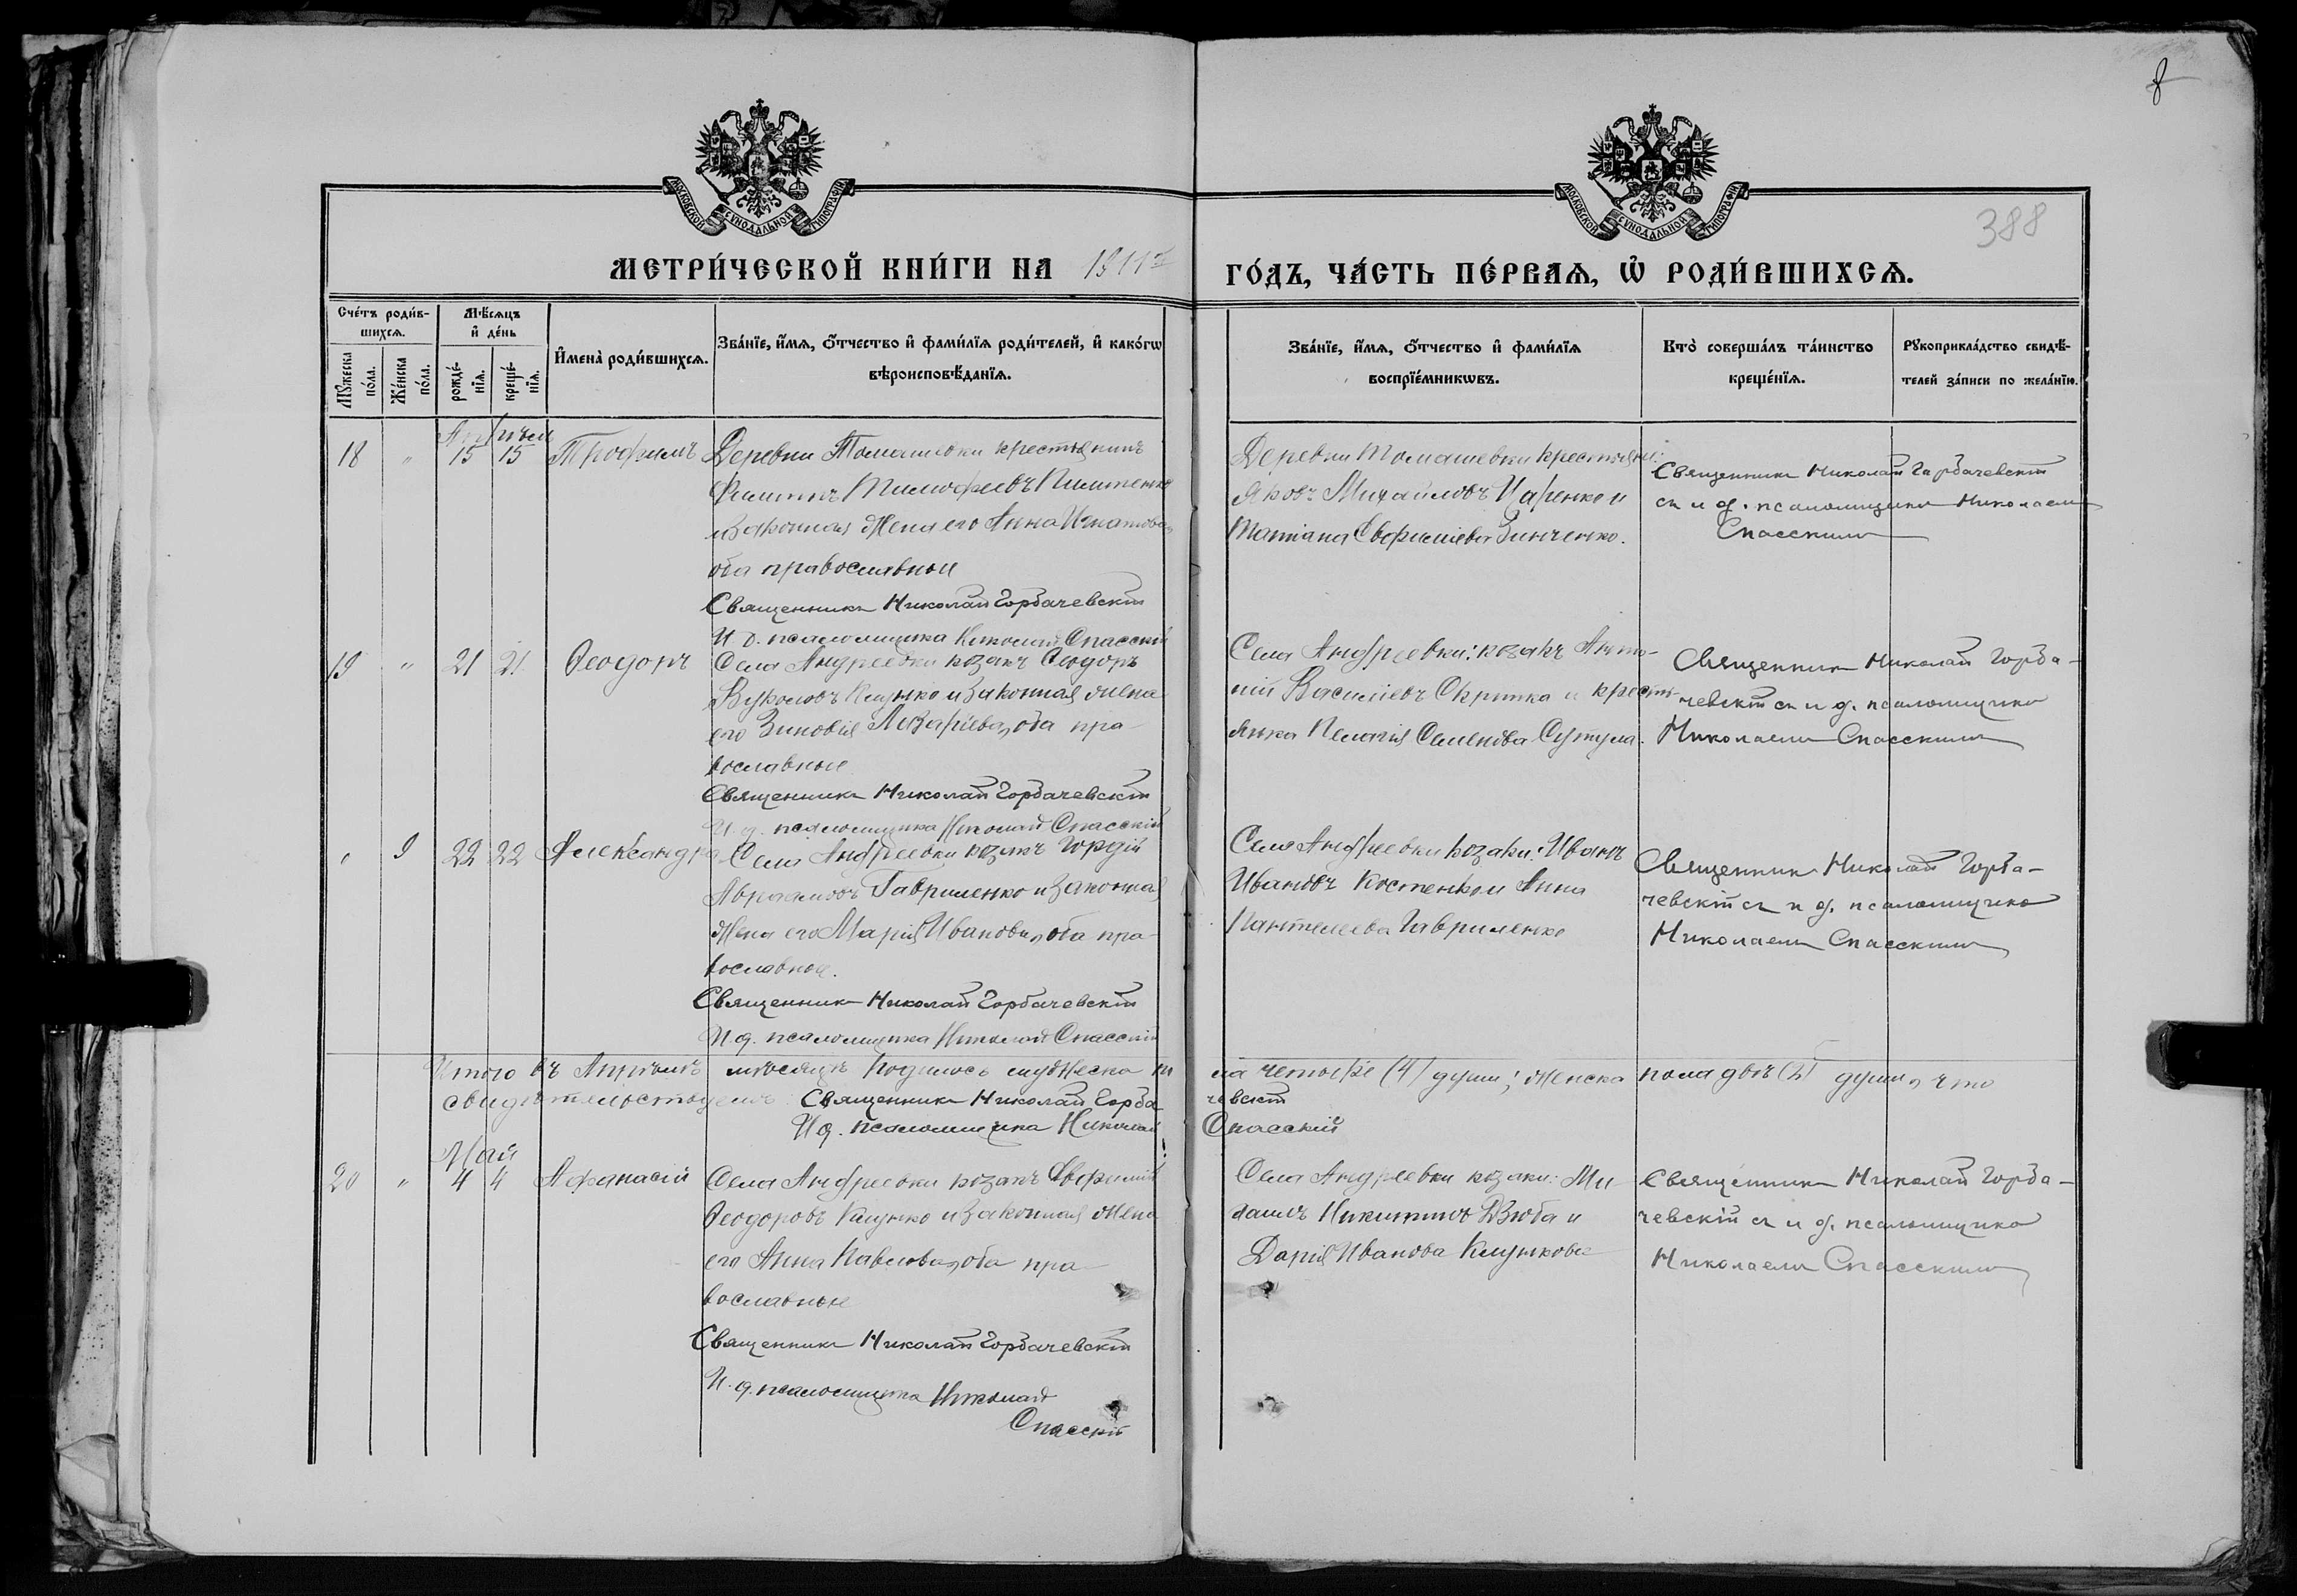 8
388
МОСКОВСКОЙ СѴНОДАЛЬНОЙ ТИПОГРАФІИ
МОСКОВСКОЙ СѴНОДАЛЬНОЙ ТИПОГРАФІИ
МЕТРИ́ЧЕСКОЙ КНИ́ГИ НА 1911 ГО́ДЪ, ЧА́СТЬ ПЕ́РВАѦ, Ѽ РОДИ́ВШИХСѦ.
Сче́тъ роди́в-
шихсѧ.
Мꙋ́жеска
по́ла.
Же́нска
по́ла.
Мѣ́сѧцъ
и҆ де́нь
рожде́-
нїѧ.
креще́-
нїѧ.
И҆мена̀ роди́вшихсѧ.
Зва́нїе, и҆́мѧ, о҆́тчество и҆ фами́лїѧ роди́телей, и҆ како́гѡ
вѣроисповѣ́данїѧ.
Зва́нїе, и҆́мѧ, о҆́тчество и҆ фами́лїѧ
воспрїе́мникѡвъ.
Кто̀ соверша́лъ та́инство
креще́нїѧ.
Рꙋкоприкла́дство свидѣ́-
телей за́писи по жела́нїю.
Апрѣль
18 " 15 15 Трофимъ
Деревни Томашевки крестьянинъ
Филиппъ Тимофеевъ
и законная жена его Анна Игнатова
оба православные
Священникъ Николай Горбачевскій
И. д. псаломщика Николай Спасскій
Деревни Томашевки крестьяне:
Яковъ Михайловъ Царенко и
Татіана Евфиміева Зинченко.
Священникъ Николай Горбачевскій
съ и д. псаломщика Николаемъ
Спасскимъ
19 " 21 21 Ѳеодоръ
Села Андреевки козакъ Ѳеодоръ
Вуколовъ Клунко и законная жена
его Зиновія Лазарева, оба пра-
вославные
Священникъ Николай Горбачевскій
И. д. псаломщика Николай Спасскій
Села Андреевки: козакъ Анто-
ній Васильевъ Скрипка и кресть-
янка Пелагія Семенова Сутула.
Священникъ Николай Горба-
чевскій съ и д. псаломщика
Николаемъ Спасскимъ
" 9 22 22 Александра
Села Андреевки козакъ Гордій
Авраамовъ Гавриленко и законная
жена его Марія Иванова, оба пра-
вославные.
Священникъ Николай Горбачевскій
И. д. псаломщика Николай Спасскій
Села Андреевки козаки: Иванъ
Ивановъ Костенко и Анна
Пантелеева Гавриленко
Священникъ Николай Горба-
чевскій съ и д. псаломщика
Николаемъ Спасскимъ
Итого въ Апрѣлѣ мѣсяцѣ родилось мужеска пола четыре (4) души; женска пола двѣ (2) души, что
свидѣтельствуемъ: Священникъ Николай Горбачевскій
И д. псаломщика Николай Спасскій
Май
20 " 4 4 Афанасій
Села Андреевки козакъ Евфимій
Ѳеодоровъ Клунко и законная жена
его Анна Павлова, оба пра-
вославные
Священникъ Николай Горбачевскій
И. д. псаломщика Николай
Спасскій
Села Андреевки козаки: Ми-
хаилъ Никитинъ Дзюба и
Дарія Иванова Клункова
Священникъ Николай Горба-
чевскій съ и д. псаломщика
Николаемъ Спасскимъ